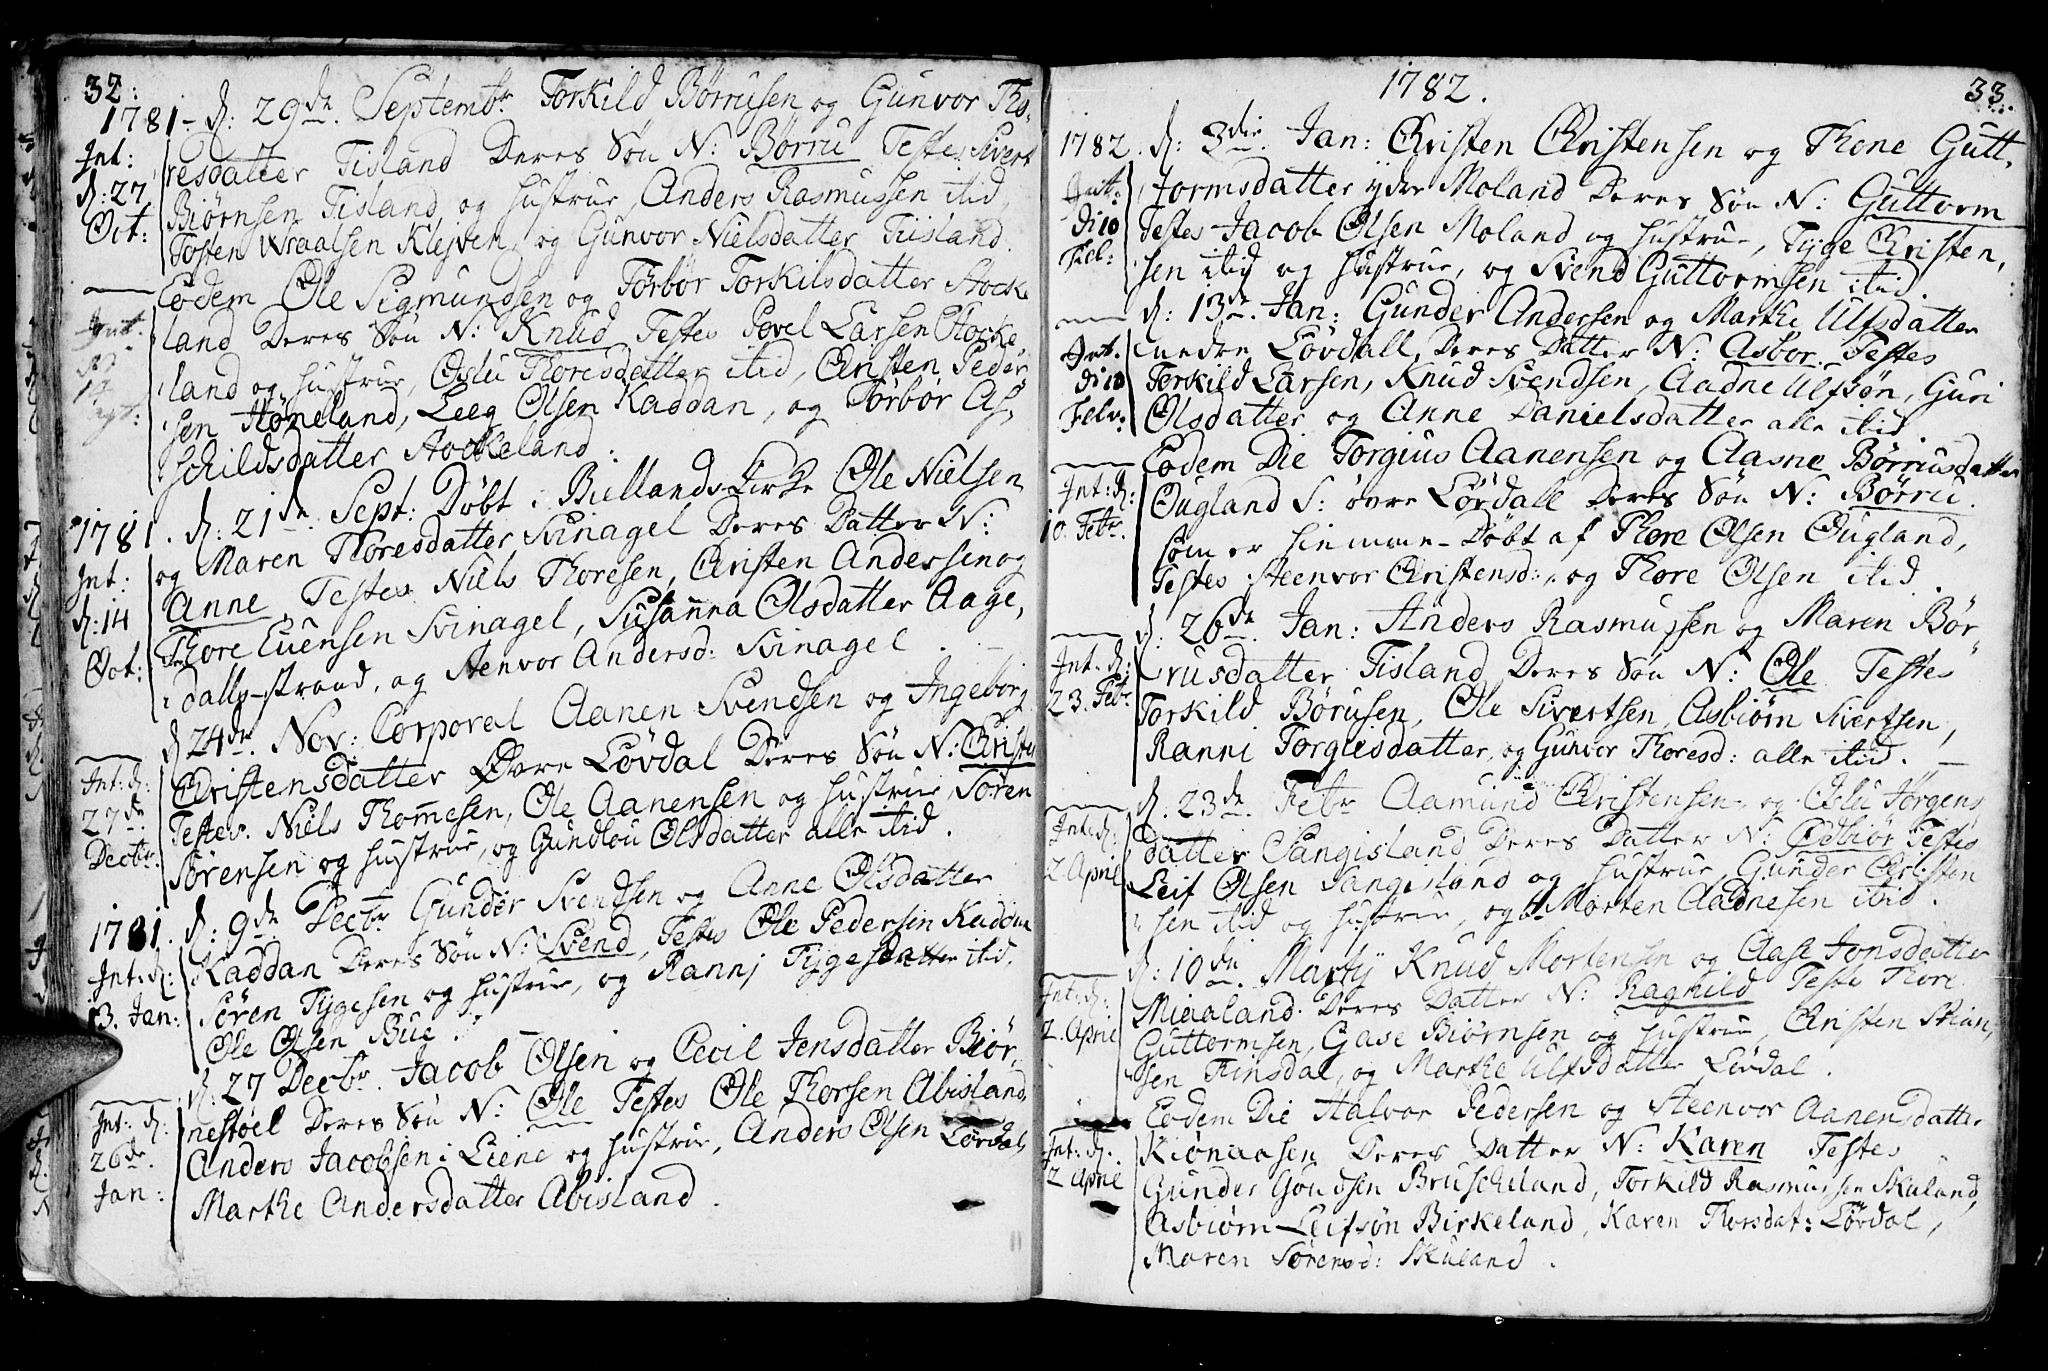 32:
1781- d: 29de Septembr Torkild Børrusen og Gunvor Tho-
resdatter Tisland Deres Søn N: Børru Testes Sivert
Biørnsen Tisland og Hustrue, Anders Rasmussen itid,
Tosten Wraalsen Klejven, og Gunvor Nielsdatter Tiisland.
Int:
d: 27
Oct:
Eodem Ole Sigmundsen og Torbor Torkilsdatter Stocke
land Deres Søn N: Knud Testes Povel Larsen Stocke
land og Hustrue, Thoresdatter itid, Christen Peder
sen Høneland, Leeg Olsen Kaddan, og Torbor As-
schildsdatter Stockeland.
Int.
1781. d: 21de Sept: Døbt i Biellands Kirke Ole Nielsen
og Maren Thoresdatter Svinagel Deres Datter N:
Anne, Testes Niels Thoresen, Christen Andersen og
Thore Evensen Svinagel, Susanna Olsdatter Aage,
dalls-strand, og Stenvor Andersd: Svinagel.
Int:
d: 14
Oct:
d 24de Nov: Corporal Aanen Svendsen og Ingeborg
Christensdatter Øvre Løvdal Deres Søn N: Christen
Testes. Niels Thommesen, Ole Aanensen og Hustrue, Søren
Sørensen og Hustrue, og Gundlou Olsdatter alle itid.
Int: d:
27de
Decbr.
1781. d: 9de Decbr Gunder Svendsen og Anne Olsdatter
Kaddan Deres Søn N: Svend, Testes Ole Pedersen Kaddan
Søren Tygesen og Hustrue, og Rannj Tygesdatter itid.
Ole Olsen Bue.
Int: d:
13. Jan:
d. 27 Decbr. Jacob Olsen og Cecil Jensdatter Biør-
nestøel Deres Søn N: Ole Testes Ole Thorsen Abisland,
Anders Jacobsen i Liene og Hustrue, Anders Olsen Lørdal,
Marthe Andersdatter Abisland.
Int: d:
26de
Jan:
1782.
33.
1782. d: 3die Jan: Christen Christensen og Thone Gutt-
formsdatter ydre Moland Deres Søn N: Guttorm
Testes Jacob Olsen Moland og Hustrue, Tyge Christen,
sen itid og Hustrue, og Svend Guttormsen itid.
Int:
d: 10
Feb:
d: 13de Jan: Gunder Andersen og Marthe Ulfsdatter
nedre Løvdall, Deres Datter N: Asbor. Testes
Torkild Larsen, Knud Svendsen, Aadne Ulfsøn, Guri
Olsdatter og Anne Danielsdatter alle itid.
Int.
d: 10
Febr:
Eodem Die Torgius Aanensen og Aasne Børrusdatter
Ougland S: øvre Lørdall Deres Søn N: Børru.
som er hiemme-Døbt af Thore Olsen Ougland,
Testes Steenvor Christensd:, og Thore Olsen itid.
Int: d:
10. Febr.
d. 26de Jan: Anders Rasmussen og Maren Bør-
rusdatter Tisland Deres Søn N: Ole Testes
Torkild Børusen, Ole Sivertsen, Asbiørn Sivertsen,
Ranni Torgiesdatter, og Gunvor Thoresd: alle itid.
Int. d:
23. Febr
d. 23de Febr Aamund Christensen og Jørgens
datter Sangisland Deres Datter N: Ødbiør Testes
Leif Olsen Sangisland og Hustrue, Gunder Christen
sen itid og Hustrue, og Morten Aadnesen itid.
Int: d:
2 April
d: 10de Martij Knud Mortensen og Aase Jonsdatter
Miaaland Deres Datter N: Ragnild Teste Thore
Guttormsen, Gase Biørnsen og Hustrue, Christen Stian,
sen Finsdal, og Marthe Ulfsdatter Løvdal.
Int: d:
2. April
Eodem Die Halvor Pedersen og Steenvor Aanensdatter
Kiønaasen Deres Datter N: Karen Testes
Gunder Goudsen Bruscheland, Torkild Rasmussen Skuland,
Asbiørn Leifsøn Birkeland, Karen Thorsdat: Lørdal,
Maren Sørensd: Skuland.
Int: d.
2 April